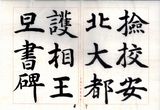 撿挍安
北大都
護相王
旦書碑